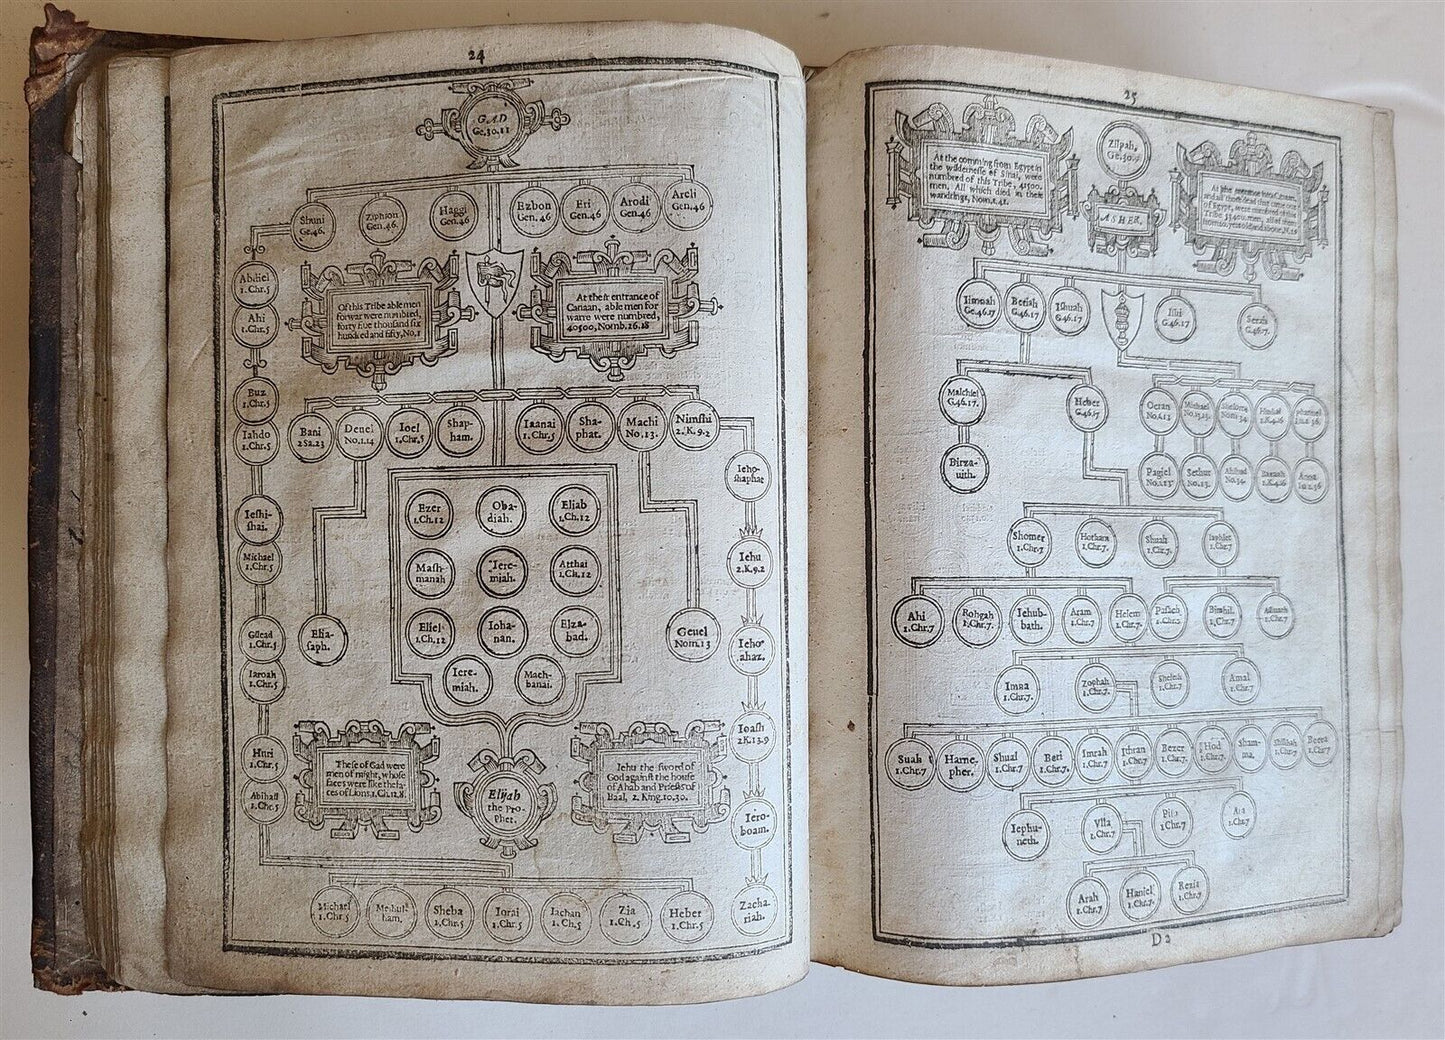 24
GAD
Ge.30.11
Shuni
Ge.46.
Ziphion
Gen.46.
Haggi
Gen.46
Ezbon
Gen.46
Eri
Gen.46
Arodi
Gen.46
Areli
Gen.46
Of this Tribe able men
for war were numbred,
forty five thousand six
hundred and fifty, No.1
At their entrance of
Canaan, able men for
warre were numbred,
40500, Nomb.26.18
Abdiel
1.Chr.5
Ahi
1.Chr.5
Buz
1.Chr.5
Iahdo
1.Chr.5
Ieshi-
shai.
Michael
1.Chr.5
Gilead
1.Chr.5
Iaroah
1.Chr.5
Huri
1.Chr.5
Abihail
1.Chr.5
Bani
2Sa.23
Deuel
No.1.14
Ioel
1.Chr.5
Shap-
ham.
Iaanai
1.Chr.5
Sha-
phat.
Machi
No.13.
Nimshi
2.K.9.2
Ieho-
shaphat
Iehu
2.K.9.2
Ieho-
ahaz.
Ioash
2K.13.9
Iero-
boam.
Zacha-
riah.
Ezer
1.Ch.12
Oba-
diah.
Eliab
1.Ch.12
Mash-
manah
Iere-
miah.
Atthai
1.Ch.12
Eliel
1.Ch.12
Ioha-
nan.
Elza-
bad.
Iere-
miah.
Mach-
banai.
Elia-
saph.
Geuel
Nom.13
These of Gad were
men of might, whose
faces were like the fa-
ces of Lions.1.Ch.12.8.
Elijah
the Pro-
phet.
Iehu the sword of
God against the house
of Ahab and Priests of
Baal, 2. King.10.30.
Michael
1.Chr.5
Meshul-
ham.
Sheba
1.Chr.5
Iorai
1.Chr.5
Iachan
1.Ch.5
Zia
1.Ch.5
Heber
1.Chr.5
25
At the comming from Egypt in
the wildernesse of Sinai, were
numbred of this Tribe, 41500.
men, All which died in their
wandrings, Nom.1.41.
Zilpah,
Ge.30.
ASHER.
At the entrance into Canaan,
and all those dead that came out
of Egypt, were numbred of this
Tribe 53400. men, all of them
from 20. yeres old and above, N.26
Iimnah
Ge.46.17
Beriah
G.46.17
Ishuah
G.46.17
Ishi
G.46.17
Serah
G.46.17.
Malchiel
G.46.17.
Heber
G.46.17
Ocran
No.1.13
Michael
Birza-
uith.
Pagiel
No.1.13
Sethur
No.13.
Ahihud
No.34.
Baanah
1.K.4.16
Anna
Shomer
1.Chr.7
Hotham
1.Chr.7.
Shuah
1.Chr.7.
Iaphlet
1.Chr.7
Ahi
1.Chr.7
Rohgah
1.Chr.7.
Iehub-
bath.
Aram
1.Chr.7.
Helem
1.Chr.7
Pasach
1.Chr.7
Bimhil.
1.Chr.7
1.Chr.7
Imna
1.Chr.7
Zophah
1.Chr.7.
Shelesh
1.Chr.7
Amal
1.Chr.7
Suah
1.Chr.7
Harne-
pher.
Shual
1.Chr.7
Beri
1.Chr.7
Imrah
1.Chr.7
Ithran
1.Chr.7
Bezer
1.Chr.7
Hod
1.Chr.7
Sham-
ma.
Shilshah
1.Chr.7
Beera
1.Chr.7
Iephu-
neth.
Vlla
1.Chr.7
1.Chr.7
Ara
1.Chr.7
Arah
1.Chr.7
Haniel
1.Chr.7.
Rezia
1.Chr.7
D2